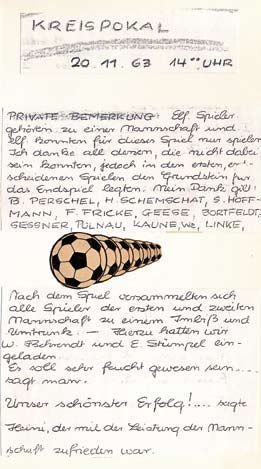 KREISPOKAL
20.11.63 14°° UHR
PRIVATE BEMERKUNG: Elf Spieler
gehören zu einer Mannschaft und
elf konnten für dieses Spiel nur spielen
Ich danke all denen, die nicht dabei
sein konnten, jedoch in den ersten, ent-
scheidenen Spielen den Grundstein für
das Endspiel legten. Mein Dank gilt:
B. PERSCHEL, H. SCHEMSCHAT, S. HOFF-
MANN, F. FRICKE, GEESE, BORTFELDT,
GESSNER, PULNAU, KAUNE, LINKE,
Nach dem Spiel versammelten sich
alle Spieler der ersten und zweiten
Mannschaft zu einem Imbiß und
Umtrunk. — Hierzu hatten wir
W. und E. Stümpel ein-
geladen.
Es soll sehr feucht gewesen sein....
sagt man.
Unser schönster Erfolg!.... sagte
Heini, der mit der Leistung der Mann-
schaft zufrieden war.